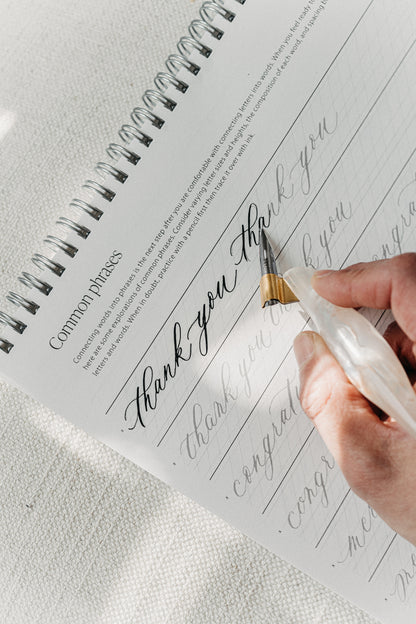 Common phrases
Connecting words into phrases is the next step after you are comfortable with connecting letters into words. When you feel ready
here are some explorations of common phrases. Consider varying letter sizes and heights, the composition of each word, and spacing
letters and words. When in doubt, practice with a pencil first then trace it over with ink.
thank you than k you
thank you thank you
congra congra
congr
me